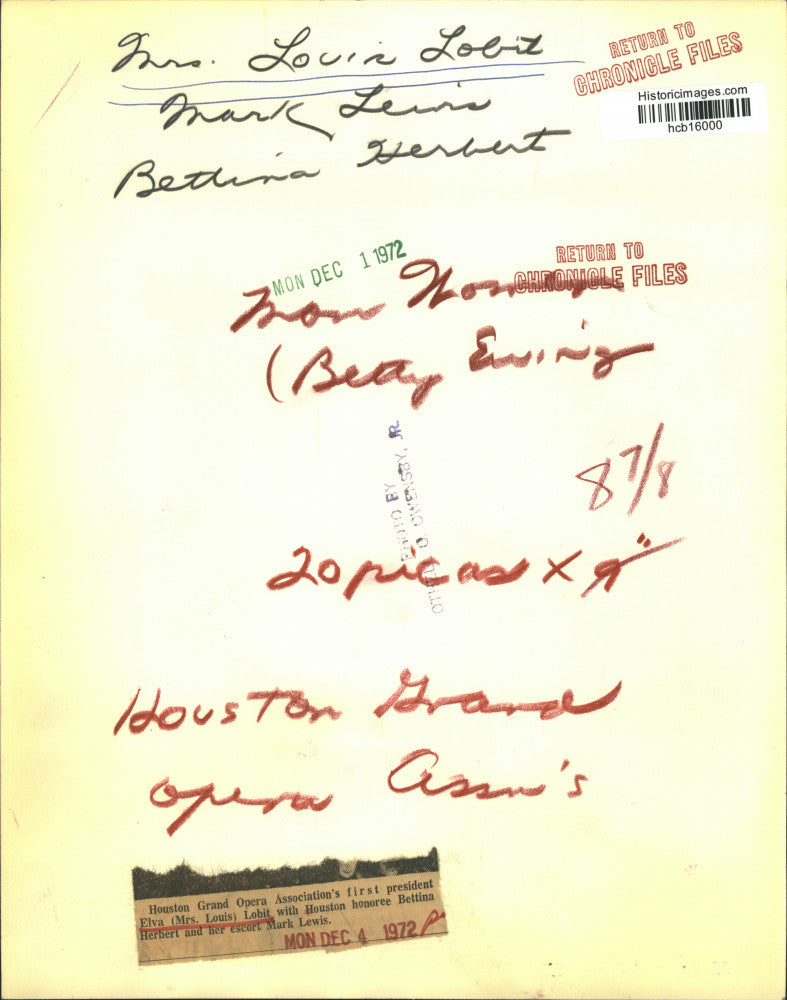 Mrs. Louis Lobit
RETURN TO
CHRONICLE FILES
Historicimages.com
hcb16000
Mark Lewis
Bettina Herbert
MON DEC 1 1972
RETURN TO
CHRONICLE FILES
Mon
(Betty Ewing
8 7/8
PHOTO BY
OWENSBY, JR.
20 picas x 9"
Houston Grand
Opera Assn's
Houston Grand Opera Association's first president
Elva (Mrs. Louis) Lobit with Houston honoree Bettina
Herbert and her escort Mark Lewis.
MON DEC 4 1972